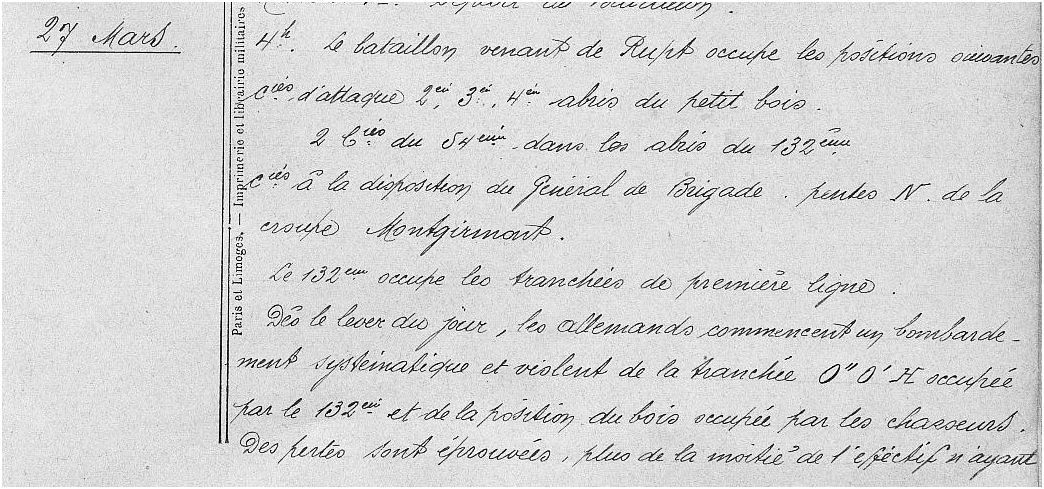 27 Mars.
Paris et Limoges. — Imprimerie et librairie militaires
4h. Le bataillon venant de Rupt occupe les positions suivantes
Cies d'attaque 2e, 3e, 4e abris du petit bois.
2 Cies du 54ème dans les abris du 132ème
Cies à la disposition du Général de Brigade. pentes N. de la
croupe Montgirmont.
Le 132ème occupe les tranchées de première ligne.
Dès le lever du jour, les allemands commencent un bombarde-
ment systématique et violent de la tranchée O" O' H occupée
par le 132e et de la position du bois occupée par les chasseurs.
Des pertes sont éprouvées, plus de la moitié de l'effectif n'ayant